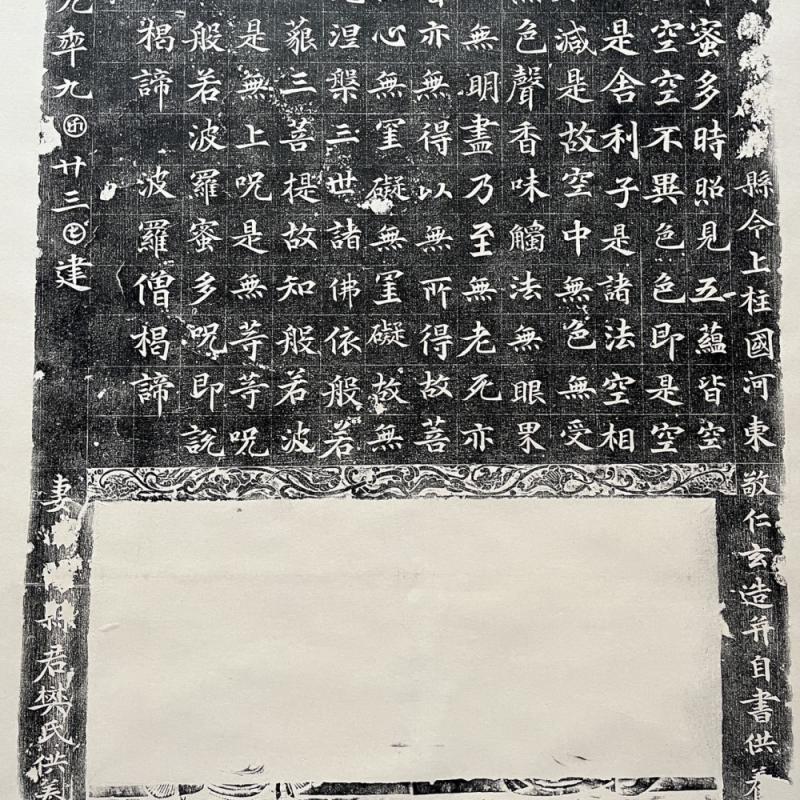 縣令上柱國河東敬仁玄造并自書供養
蜜多時照見五蘊皆空
空空不異色色即是空
是舍利子是諸法空相
減是故空中無色無受
色聲香味觸法無眼界
無明盡乃至無老死亦
亦無得以無所得故菩
心無罣礙無罣礙故無
涅槃三世諸佛依般若
藐三菩提故知般若波
是無上呪是無等等呪
般若波羅蜜多呪即說
楬諦 波羅僧楬諦
元秊九𠥱廿三𡆠建 妻縣君樊氏供養